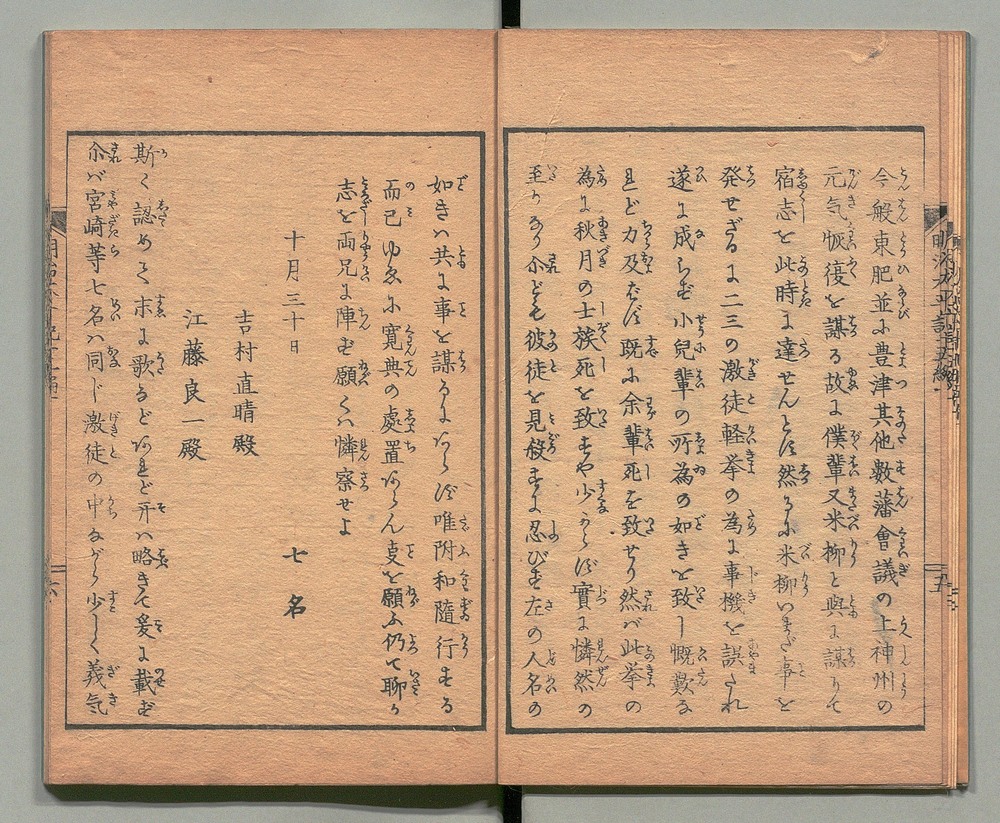 今般東肥並に豊津其他數藩會議の上神州の
元気恢復を謀る故に僕輩又米柳と與に謀りて
宿志を此時に達せんとす然るに米柳いまだ事を
発せざるに二三の激徒軽挙の為に事機を誤され
遂に成らず小兒輩の所為の如きを致し慨歎る
且ど力及ばず既に余輩死を致せり然ば此挙の
為に秋月の士族死を致すや少からず實に憐然の
至りなり尓ども彼徒を見殺すに忍びず左の人名の
如きハ共に事を謀るにあらず唯附和隨行する
而已ゆゑに寛典の處置あらん支を願ふ仍て聊か
志を両兄に陣ず願くハ憐察せよ
十月三十日
七名
吉村直晴殿
江藤良一殿
斯く認めて末に歌などあれど开ハ略きて爰に載ず
尓バ宮崎等七名ハ同じ激徒の中ながら少しく義気